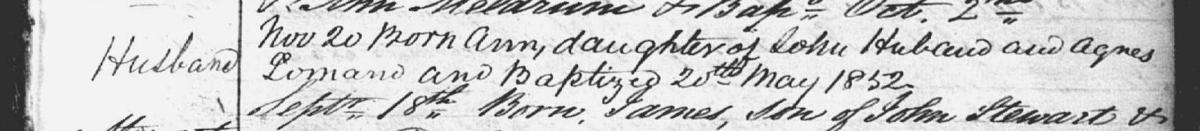 & Ann Meldrum & Bapd. Oct. 2nd
Husband
Nov 20 Born Ann, daughter of John Huband and Agnes
Lomand and Baptized 20th May 1852
Septr. 18th Born, James, son of John Stewart &
Stewart